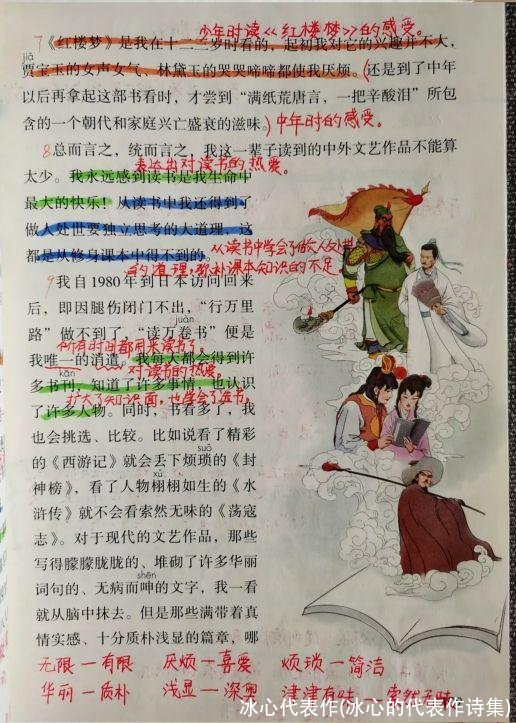 少年时读《红楼梦》的感受。
7《红楼梦》是我在十二三岁时看的，起初我对它的兴趣并不大，
jiǎ
贾宝玉的女声女气，林黛玉的哭哭啼啼都使我厌烦。(还是到了中年
以后再拿起这部书看时，才尝到“满纸荒唐言，一把辛酸泪”所包
含的一个朝代和家庭兴亡盛衰的滋味。)中年时的感受。
8总而言之，统而言之，我这一辈子读到的中外文艺作品不能算
表达出对读书的热爱。
太少。我永远感到读书是我生命中
最大的快乐！从读书中我还得到了
做人处世要独立思考的大道理，这
都是从修身课本中得不到的。
从读书中学会了做人处世
的道理，弥补课本知识的不足。
9我自1980年到日本访问回来
后，即因腿伤闭门不出，“行万里
juàn
路”做不到了，“读万卷书”便是
所有时间都用来读书了。
我唯一的消遣。我每天都会得到许
对读书的热爱。
kān
多书刊，知道了许多事情，也认识
扩大了知识面，也学会了选书。
了许多人物。同时，书看多了，我
也会挑选、比较。比如说看了精彩
suǒ
的《西游记》就会丢下烦琐的《封
xǔ
神榜》，看了人物栩栩如生的《水
浒传》就不会看索然无味的《荡寇
志》。对于现代的文艺作品，那些
写得朦朦胧胧的、堆砌了许多华丽
shēn
词句的、无病而呻的文字，我一看
就从脑中抹去。但是那些满带着真
情实感、十分质朴浅显的篇章，哪
无限—有限 厌烦—喜爱 烦琐—简洁
华丽—质朴 浅显—深奥 津津有味—索然无味
冰心代表作(冰心的代表作诗集)